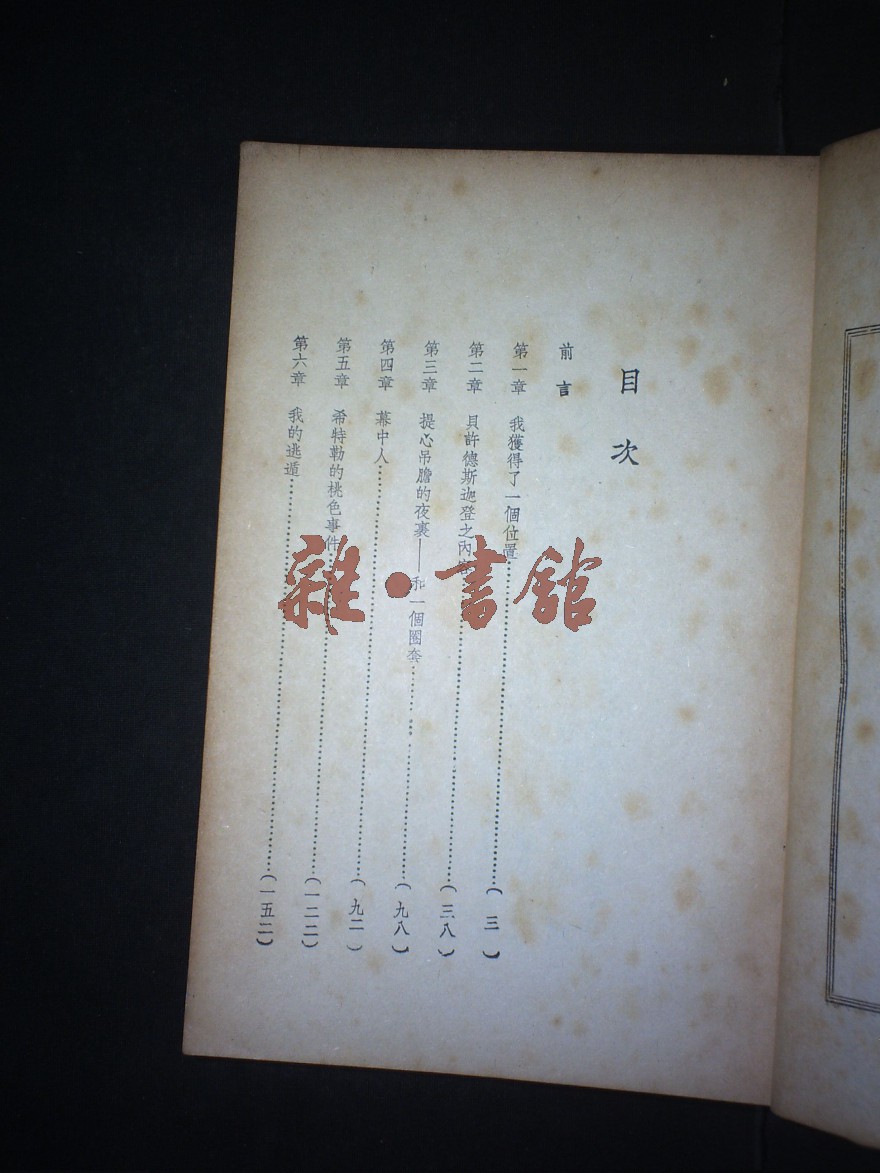 目次
前言
第一章 我獲得了一個位置………(三)
第二章 貝許德斯迦登之內………(三八)
第三章 提心吊膽的夜裏——和一個圈套………(九八)
第四章 幕中人………(九二)
第五章 希特勒的桃色事件………(一二二)
第六章 我的逃遁………(一五二)
雜·書館